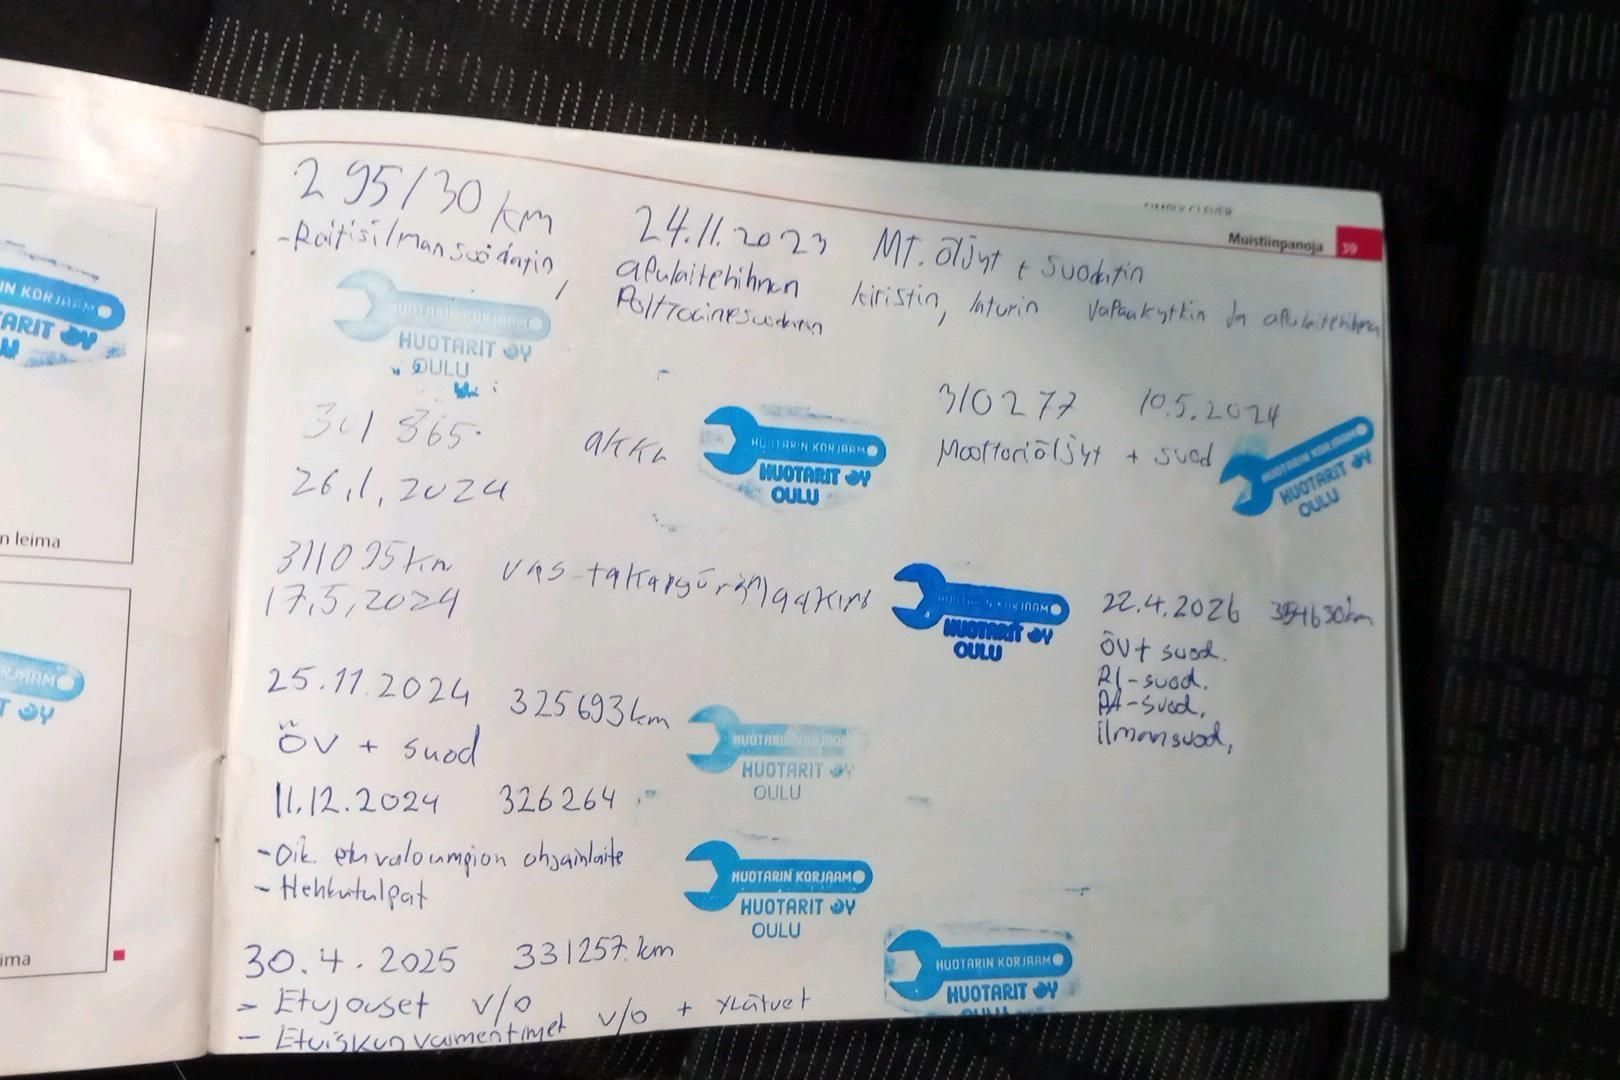 IN KORJAAMO
ARIT OY
LU
n leima
RJAAMO
T OY
ima
SIMPLY CLEVER
Muistiinpanoja 39
295130 km 24.11.2023 MT. öljyt + suodatin
-Raitisilmansuodatin, apulaitehihnan kiristin, laturin vapaakytkin ja apulaitehihna
Polttoainesuodatin
HUOTARIN KORJAAMO
HUOTARIT OY
OULU
301 865 akku
26.1.2024
HUOTARIN KORJAAMO
HUOTARIT OY
OULU
310277 10.5.2024
Moottoriöljyt + suod
HUOTARIN KORJAAMO
HUOTARIT OY
OULU
311095 km vas-takapyöränlaakeri
17.5.2024
HUOTARIN KORJAAMO
HUOTARIT OY
OULU
25.11.2024 325693 km
ÖV + suod
HUOTARIN KORJAAMO
HUOTARIT OY
OULU
11.12.2024 326264
-Oik. etuvaloumpion ohjainlaite
- Hehkutulpat
HUOTARIN KORJAAMO
HUOTARIT OY
OULU
30.4.2025 331257 km
- Etujouset v/o
- Etuiskunvaimentimet v/o + Ylätuet
HUOTARIN KORJAAMO
HUOTARIT OY
OULU
22.4.2026 354630 km
ÖV + suod.
RI-suod.
PA-suod.
ilmansuod.